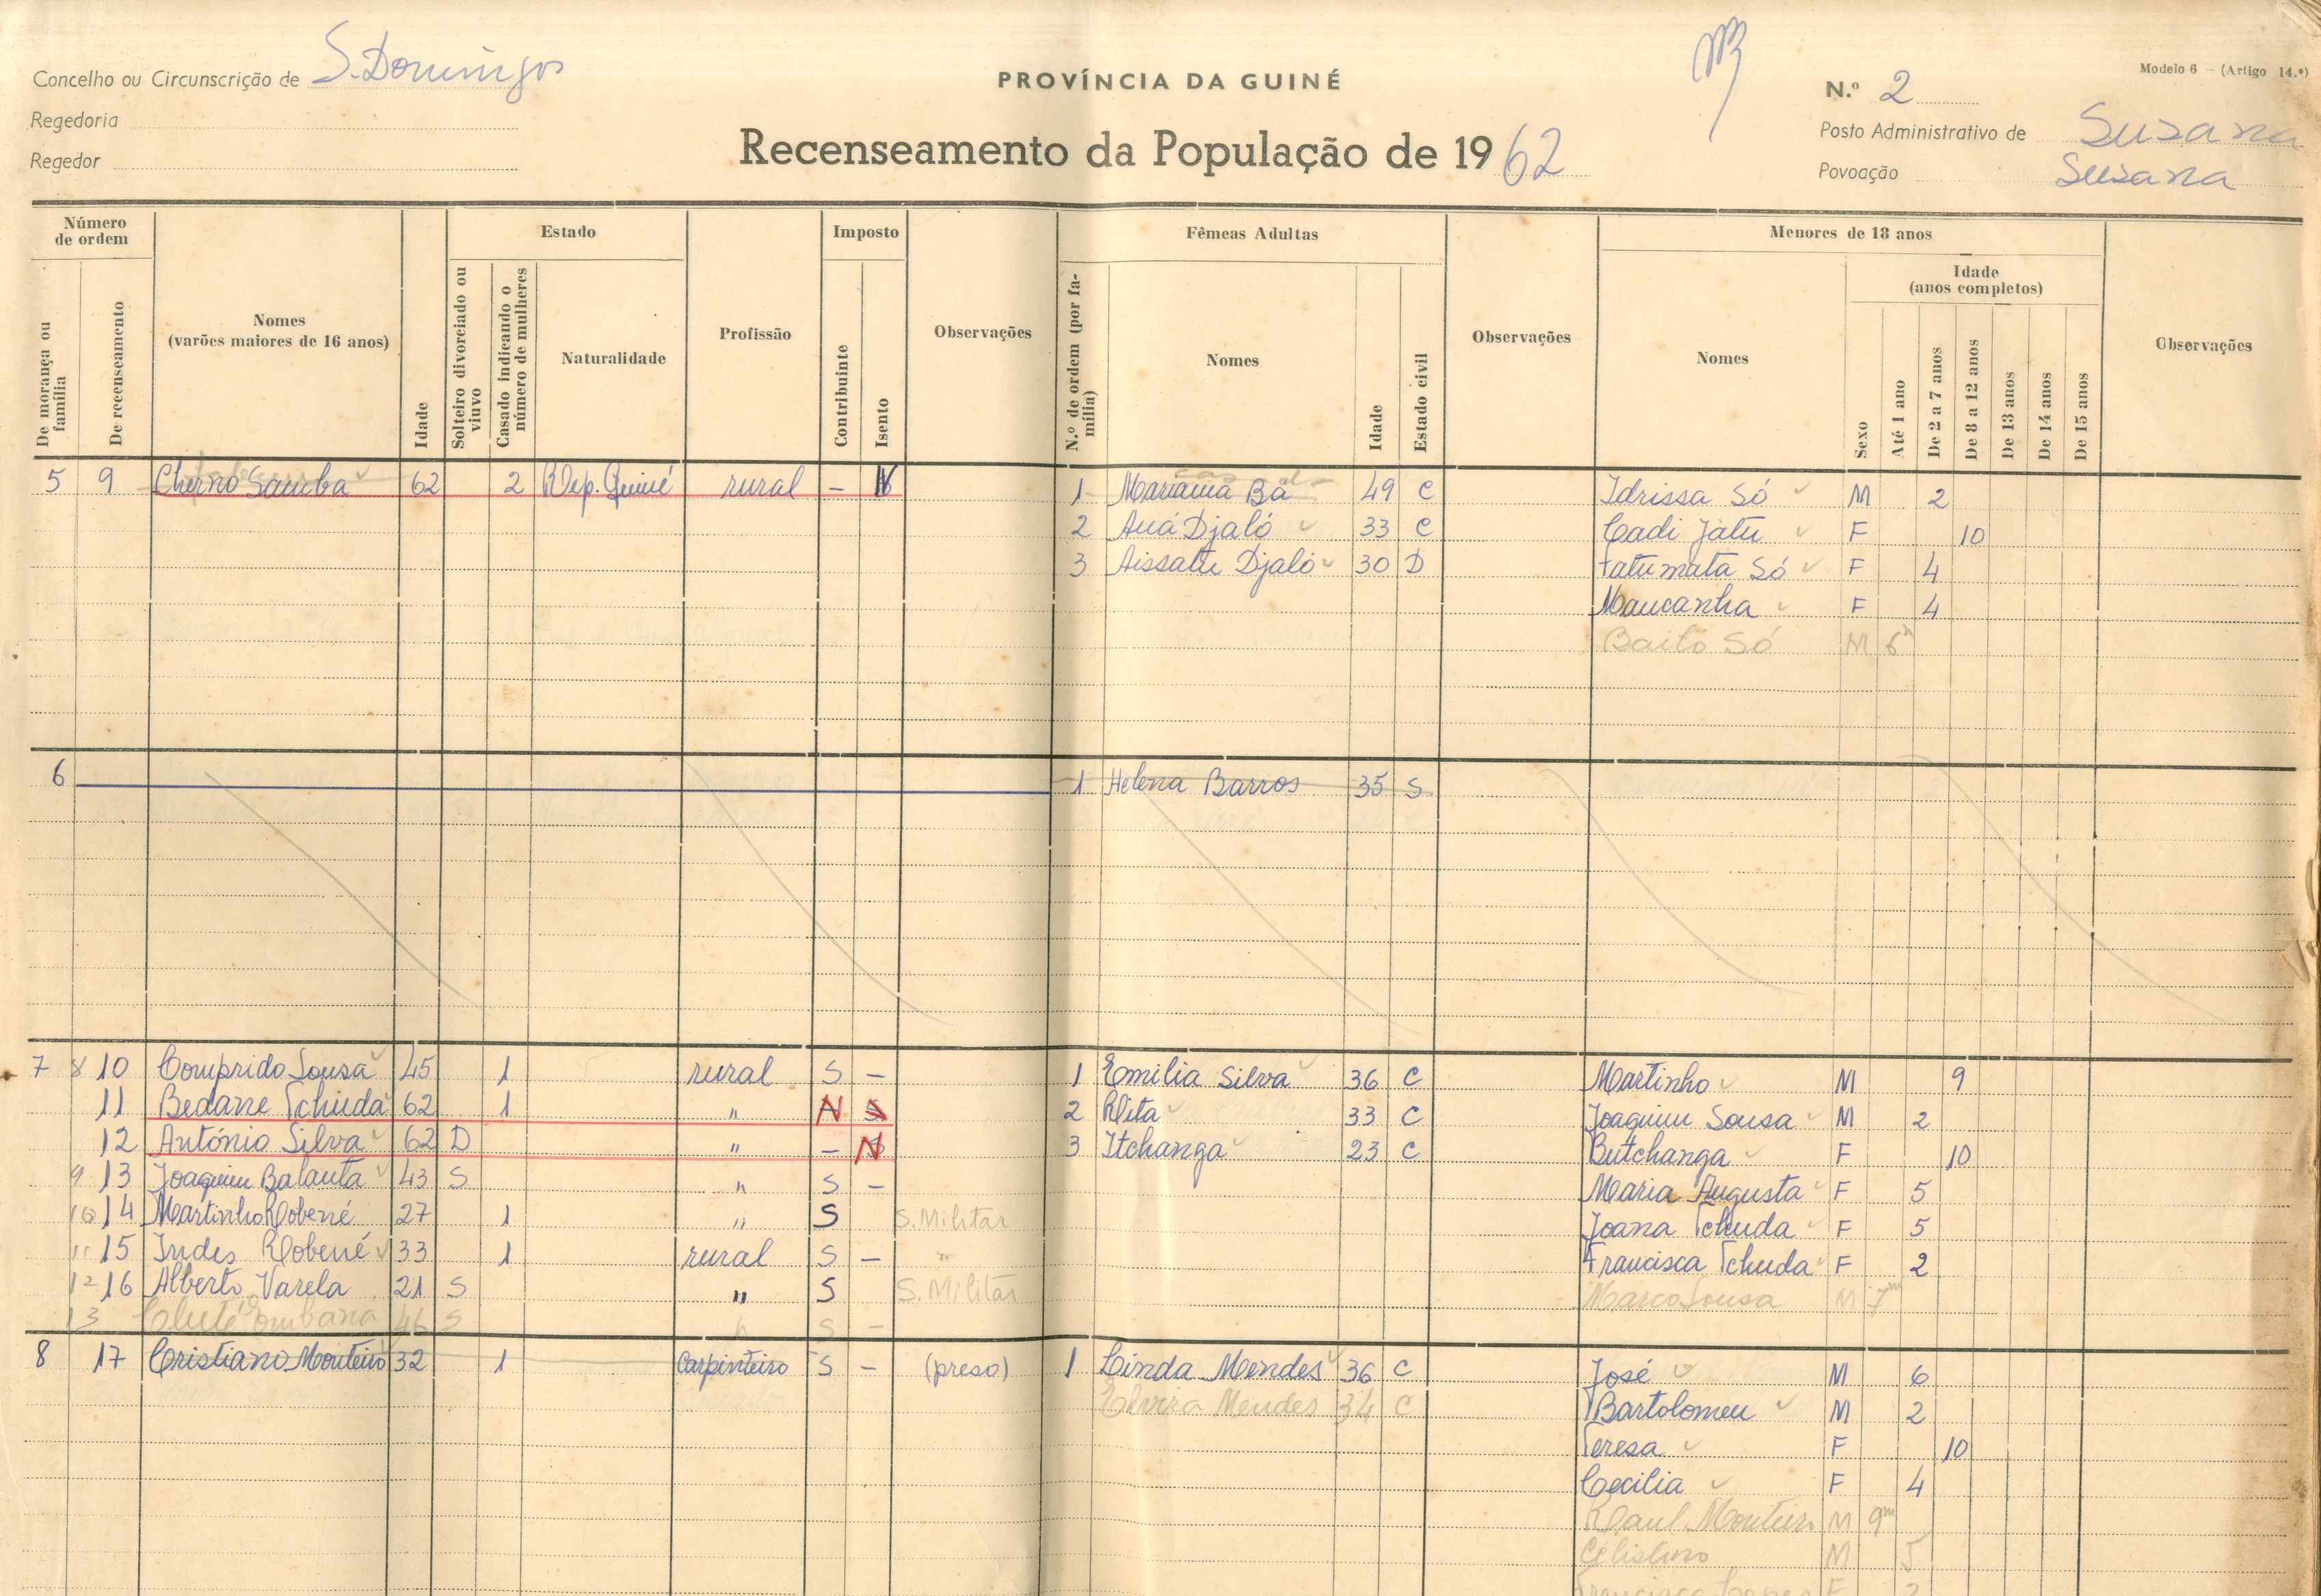 Concelho ou Circunscrição de S. Domingos
Regedoria
Regedor
PROVÍNCIA DA GUINÉ
Recenseamento da População de 1962
Modelo 6 - (Artigo 14.º)
N.º 2
Posto Administrativo de Susana
Povoação Susana
Número de ordem
De morança ou família
De recenseamento
Nomes (varões maiores de 16 anos)
Idade
Estado
Solteiro divorciado ou viuvo
Casado indicando o número de mulheres
Naturalidade
Profissão
Imposto
Contribuinte
Isento
Observações
Fêmeas Adultas
N.º de ordem (por família)
Nomes
Idade
Estado civil
Observações
Menores de 18 anos
Nomes
Sexo
Idade (anos completos)
Até 1 ano
De 2 a 7 anos
De 8 a 12 anos
De 13 anos
De 14 anos
De 15 anos
Observações
5 9 Cherno Samba 62 2 Rep. Guiné rural - N 1 Mariama Bá 49 C Idrissa Só M 2
2 Auá Djaló 33 C Cadi Jatu F 10
3 Aissatu Djaló 30 D Fatumata Só F 4
Maucanha F 4
Bailó Só M 6m
6 1 Helena Barros 35 S
7 8 10 Comprido Sousa 45 1 rural S - 1 Emilia Silva 36 C Martinho M 9
11 Bedane Tchuda 62 1 " N S 2 Rita 33 C Joaquim Sousa M 2
12 António Silva 62 D " - N 3 Itchanga 23 C Butchanga F 10
9 13 Joaquim Balanta 43 S " S - Maria Augusta F 5
10 14 Martinho Robené 27 1 " S S. Militar Joana Tchuda F 5
11 15 Indes Robené 33 1 rural S - Francisca Tchuda F 2
12 16 Alberto Varela 21 S " S S. Militar Marco Sousa M 7m
13 46 S " S -
8 17 Cristiano Monteiro 32 1 Carpinteiro S - (preso) 1 Linda Mendes 36 C José M 6
Elvira Mendes 34 C Bartolomeu M 2
Teresa F 10
Cecilia F 4
Raul Monteiro M 9m
M 5
Francisca Lopes F 2